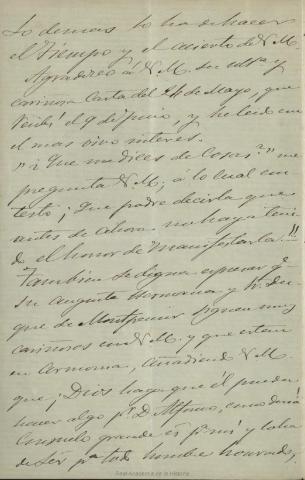 Lo demas lo ha de hacer
el Tiempo y el acierto de V. M.
Agradezco á V. M. su
cariñosa Carta del 24 de Mayo, que
recibi el 9 de Junio, y he leido con
el mas vivo interes.
"¿Que me dices de cosas?" me
pregunta V. M; á lo cual con
testo; ¡Que podre decirla que
antes de ahora no haya teni
do el honor de manifestarla!!!
Tambien se digna expresar qe
su augusta Hermana y el Du
que de Montpensier siguen muy
cariñosos con V. M. y que estan
en armonia, añadiendo V. M.
que ¡Dios haga que él pueda
hacer algo pr D. Alfonso, como decia
Consuelo grande es pa mi y lo ha
de ser pa todo hombre honrado,
Real Academia de la Historia